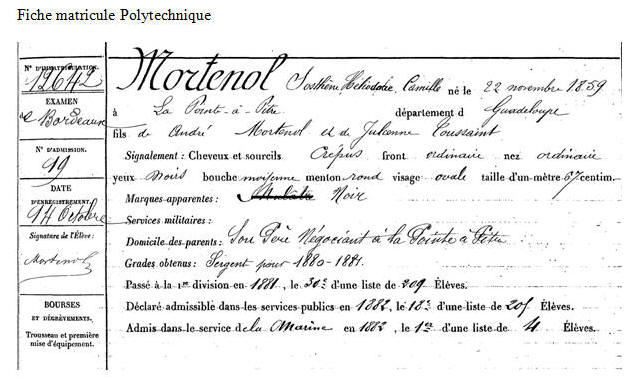 Fiche matricule Polytechnique
N° D'IMMATRICULATION.
12642
EXAMEN
de Bordeaux
N° D'ADMISSION.
19
DATE
D'ENREGISTREMENT
14 Octobre
Signature de l'Élève:
Mortenol
BOURSES
ET DÉGRÈVEMENTS.
Trousseau et première
mise d'équipement.
Mortenol Sosthène Héliodore Camille né le 22 novembre 1859
à La Pointe-à-Pitre département d Guadeloupe
fils de André Mortenol et de Julienne Toussaint
Signalement: Cheveux et sourcils Crépus front ordinaire nez ordinaire
yeux Noirs bouche moyenne menton rond visage ovale taille d'un mètre 67 centim.
Marques apparentes: Mulatre Noir
Services militaires:
Domicile des parents: Son Père Négociant à la Pointe à Pitre
Grades obtenus: Sergent pour 1880-1881.
Passé à la 1re division en 1881, le 30e d'une liste de 209 Élèves.
Déclaré admissible dans les services publics en 1882, le 18e d'une liste de 205 Élèves.
Admis dans le service de la Marine en 1882, le 1er d'une liste de 4 Élèves.